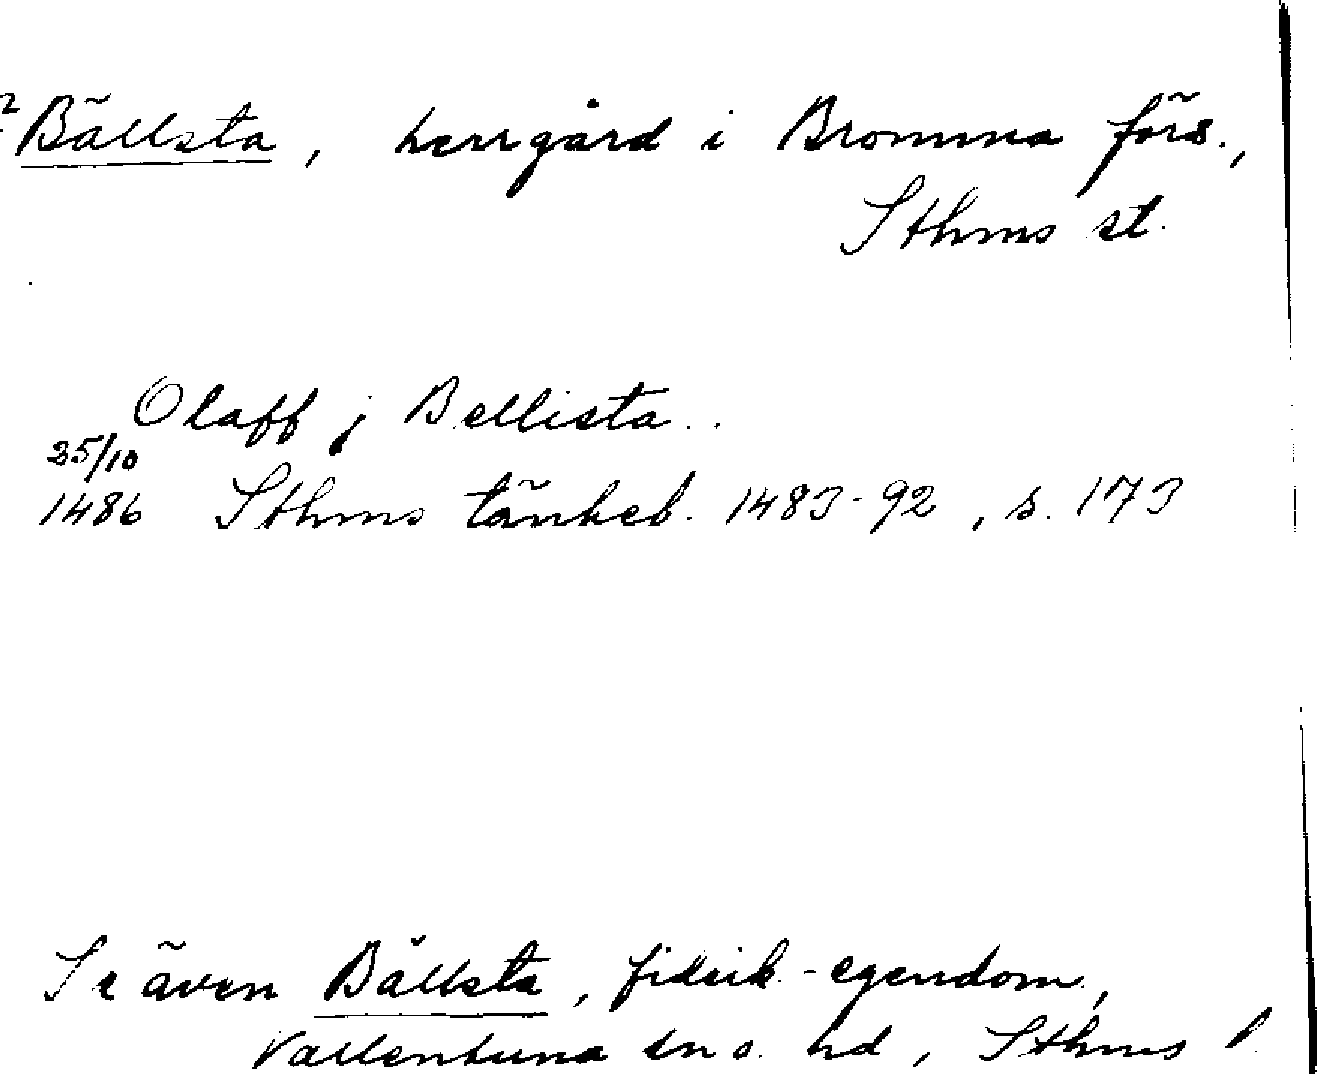 ? Bällsta, herrgård i Bromma förs.,
Sthms st.
Olaff j Bellista..
25/10
1486 Sthms tänkeb. 1483-92, s. 173
Se även Bällsta, fideik.-egendom,
Vallentuna sn o. hd, Sthms l.